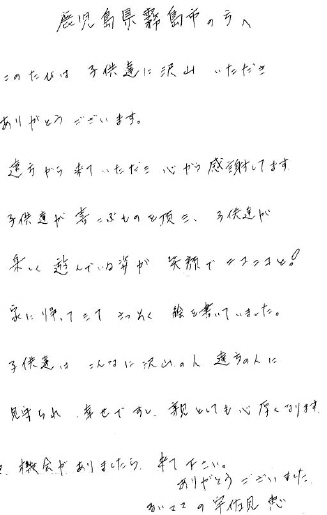 鹿児島県霧島市の方へ
このたびは 子供達に沢山 いただき
ありがとう ございます。
遠方から 来ていただき 心から 感謝してます
子供達が 喜こぶものを頂き、子供達が
楽しく 遊んでいる姿が 笑顔で ニコニコと!
家に帰ってきて さっそく 絵を書いていました。
子供達は こんなに沢山の人 遠方の人に
見守られ 幸せですし、親としても心厚くなります
機会がありましたら、来て下さい。
ありがとう ございました
の 宇佐見